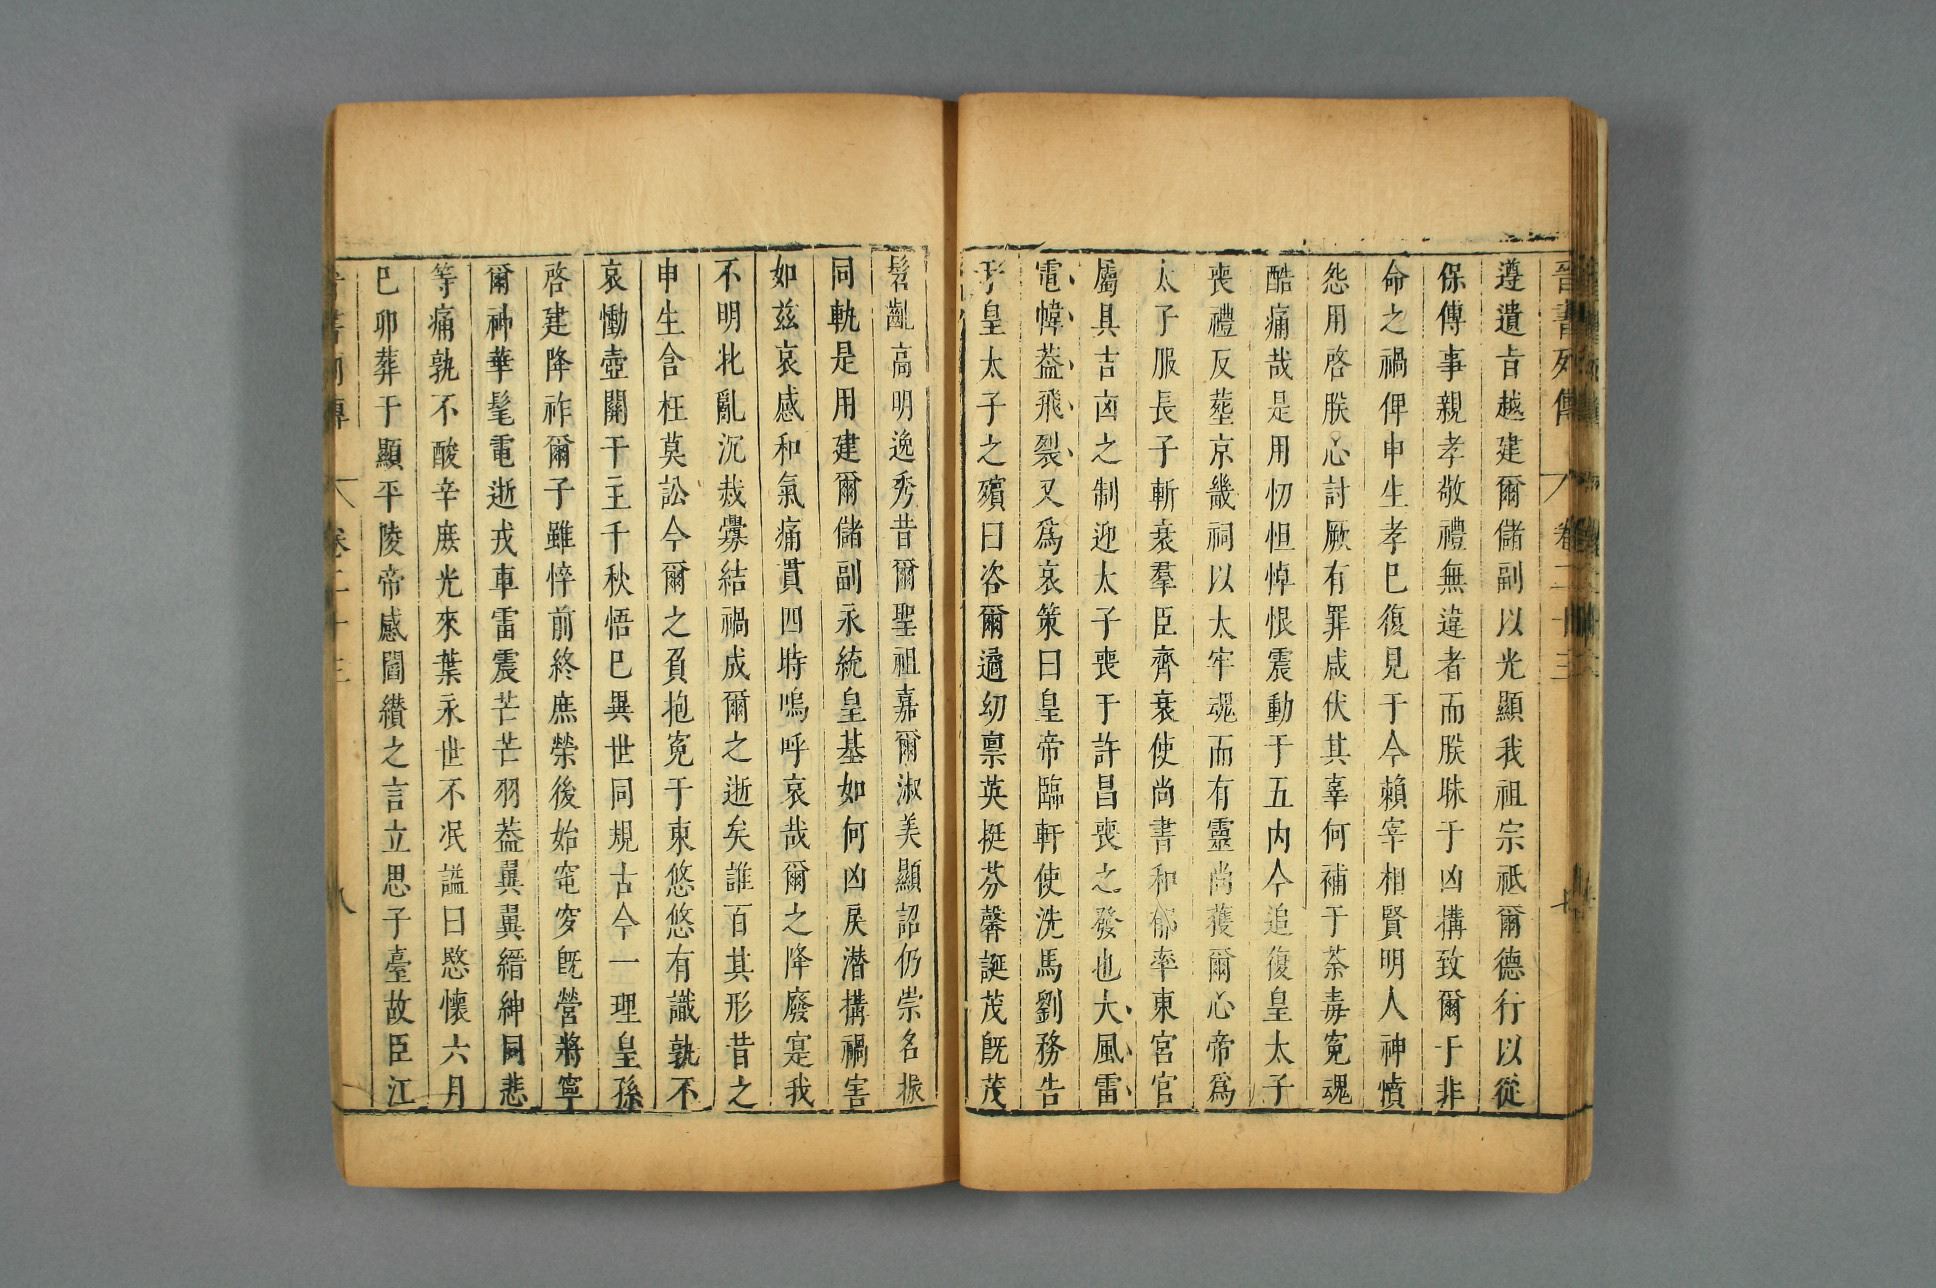 晉書列傳 卷二十三 七
遵遺旨越建爾儲副以光顯我祖宗祗爾德行以從
保傅事親孝敬禮無違者而朕昧于凶構致爾于非
命之禍俾申生孝己復見于今賴宰相賢明人神憤
怨用啓朕心討厥有罪咸伏其辜何補于荼毒寃魂
酷痛哉是用忉怛悼恨震動于五内今追復皇太子
喪禮反葬京畿祠以太牢魂而有靈尚獲爾心帝爲
太子服長子斬衰羣臣齊衰使尚書和郁率東宮官
屬具吉凶之制迎太子喪于許昌喪之發也大風雷
電幃葢飛裂又爲哀策曰皇帝臨軒使洗馬劉務告
于皇太子之殯曰咨爾遹幼禀英挺芬馨誕茂旣茂
髫齓高明逸秀昔爾聖祖嘉爾淑美顯詔仍崇名振
同軌是用建爾儲副永統皇基如何凶戾潛構禍害
如兹哀感和氣痛貫四時嗚呼哀哉爾之降廢寔我
不明牝亂沉烖釁結禍成爾之逝矣誰百其形昔之
申生含枉莫訟今爾之負抱寃于東悠悠有識孰不
哀慟壺關干主千秋悟已異世同規古今一理皇孫
啓建降祚爾子雖悴前終庶榮後始窀穸旣營將寧
爾神華髦電逝戎車雷震芒芒羽葢翼翼縉紳同悲
等痛孰不酸辛庶光來葉永世不泯諡曰愍懷六月
己卯葬于顯平陵帝感閻纘之言立思子臺故臣江
晉書列傳 卷二十三 八